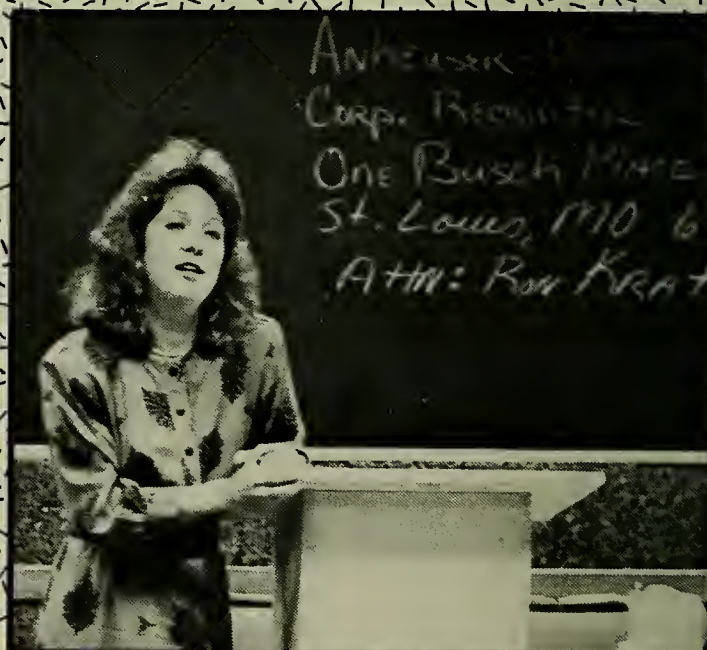 Anheuser
Corp. Recruiting
One Busch Place
St. Louis, MO 6
Attn: Ron Krat